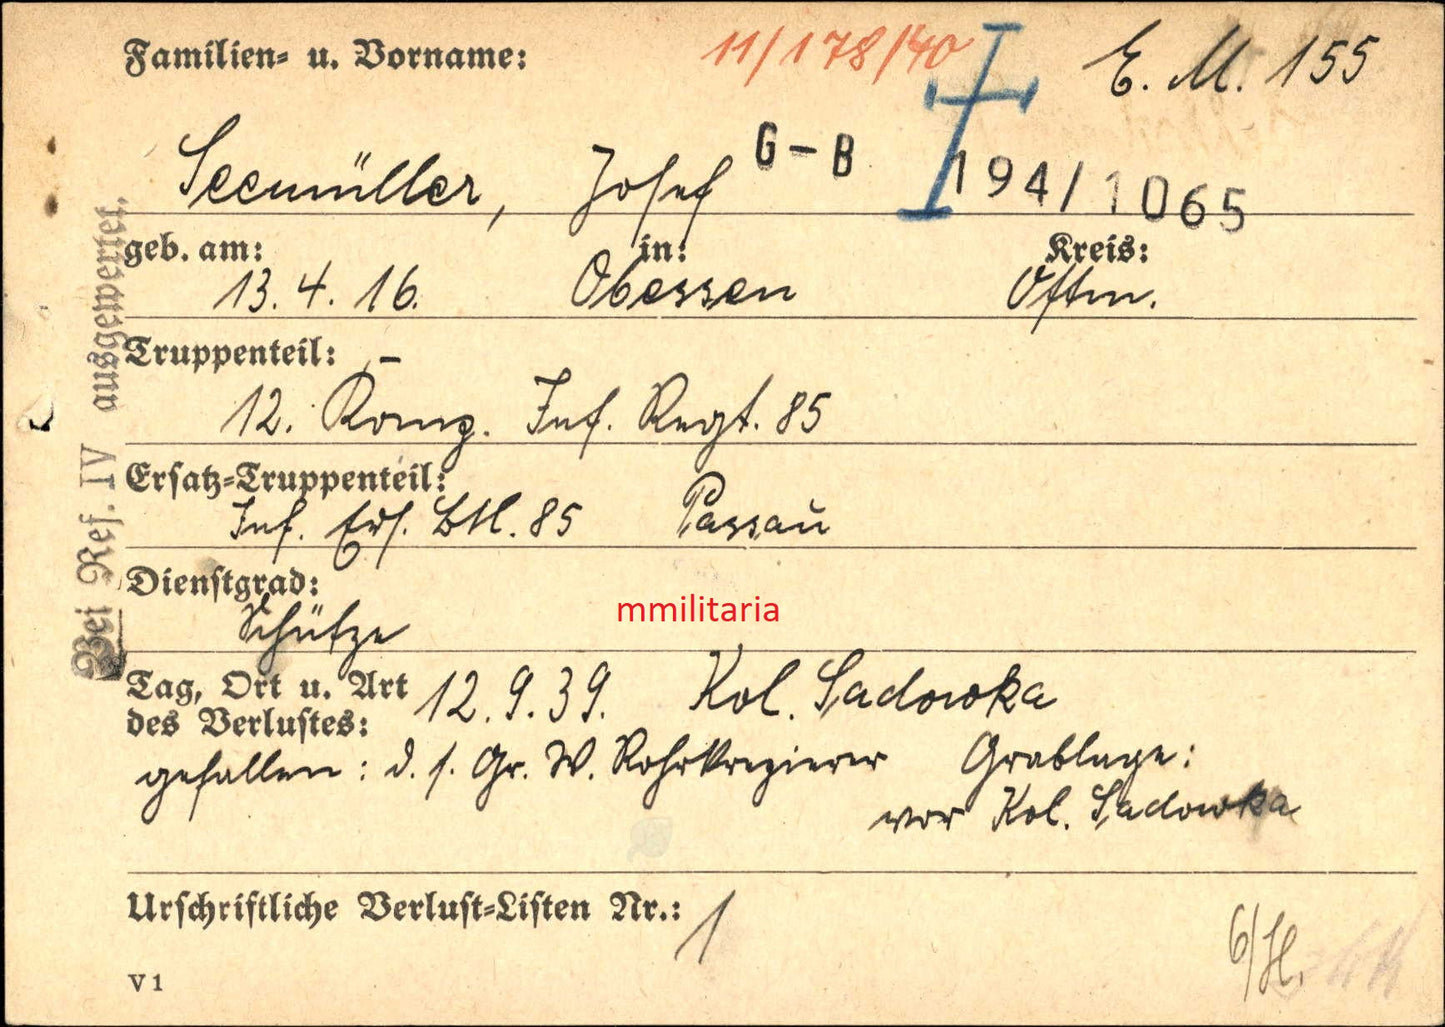 Familien- u. Vorname: 11/178/40 E. M. 155
Seemüller, Josef G-B 194/1065
geb. am: in: Kreis:
13. 4. 16. Obessen
Truppenteil:
12. Komp. Inf. Regt. 85
Ersatz-Truppenteil:
Inf. Ers. Btl. 85 Passau
Dienstgrad:
Schütze
mmilitaria
Tag, Ort u. Art 12. 9. 39. Kol. Sadowka
des Verlustes:
gefallen: d. s. Gr. W. Rohrkrepierer Grablage:
vor Kol. Sadowka
Urschriftliche Verlust-Listen Nr.: 1
V 1
Bei Ref. IV ausgewertet.